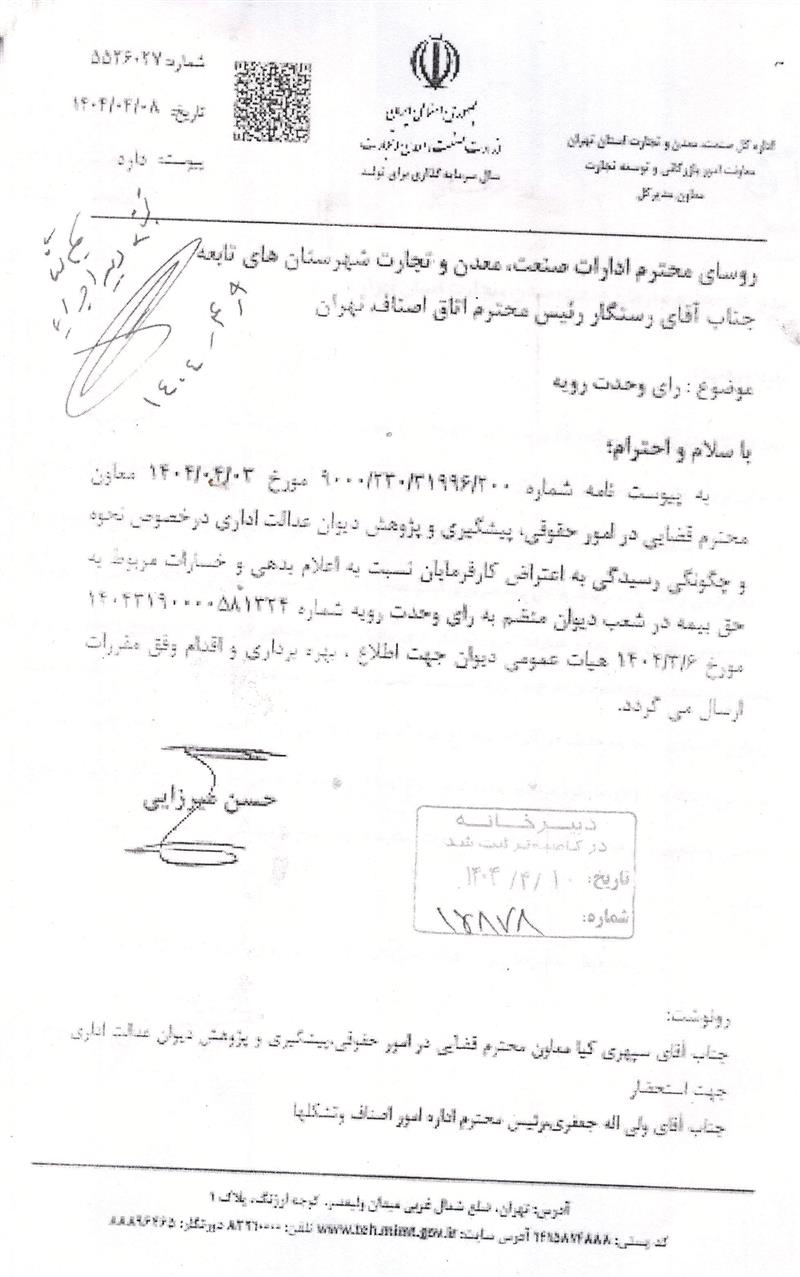 شماره: ۵۵۲۶۰۲۷
تاریخ: ۱۴۰۴/۰۴/۰۸
پیوست: دارد
جمهوری اسلامی ایران
وزارت صنعت، معدن و تجارت
سال سرمایه گذاری برای تولید
اداره کل صنعت، معدن و تجارت استان تهران
معاونت امور بازرگانی و توسعه تجارت
معاون مدیرکل
۱۴۰۴-۴-۸
روسای محترم ادارات صنعت، معدن و تجارت شهرستان های تابعه
جناب آقای رستگار رئیس محترم اتاق اصناف تهران
موضوع : رای وحدت رویه
با سلام و احترام؛
به پیوست نامه شماره ۹۰۰۰/۲۳۰/۳۱۹۹۶/۲۰۰ مورخ ۱۴۰۴/۰۴/۰۳ معاون
محترم قضایی در امور حقوقی، پیشگیری و پژوهش دیوان عدالت اداری درخصوص نحوه
و چگونگی رسیدگی به اعتراض کارفرمایان نسبت به اعلام بدهی و خسارات مربوط به
حق بیمه در شعب دیوان منضم به رای وحدت رویه شماره ۱۴۰۴۳۱۹۰۰۰۰۵۸۱۳۲۴
مورخ ۱۴۰۴/۳/۶ هیات عمومی دیوان جهت اطلاع ، بهره برداری و اقدام وفق مقررات
ارسال می گردد.
حسن میرزایی
دبیرخانه
ثبت شد
تاریخ: ۱۴۰۴/۴/۱۰
شماره:
رونوشت:
جناب آقای سپهری کیا معاون محترم قضایی در امور حقوقی،پیشگیری و پژوهش دیوان عدالت اداری
جهت استحضار
جناب آقای ولی اله جعفری،رئیس محترم اداره امور اصناف وتشکلها
آدرس: تهران، ضلع شمال غربی میدان ولیعصر، کوچه ارژنگ، پلاک ۱
کد پستی: آدرس سایت: www.teh.mimt.gov.ir تلفن: دورنگار: ۸۸۸۹۶۴۶۵